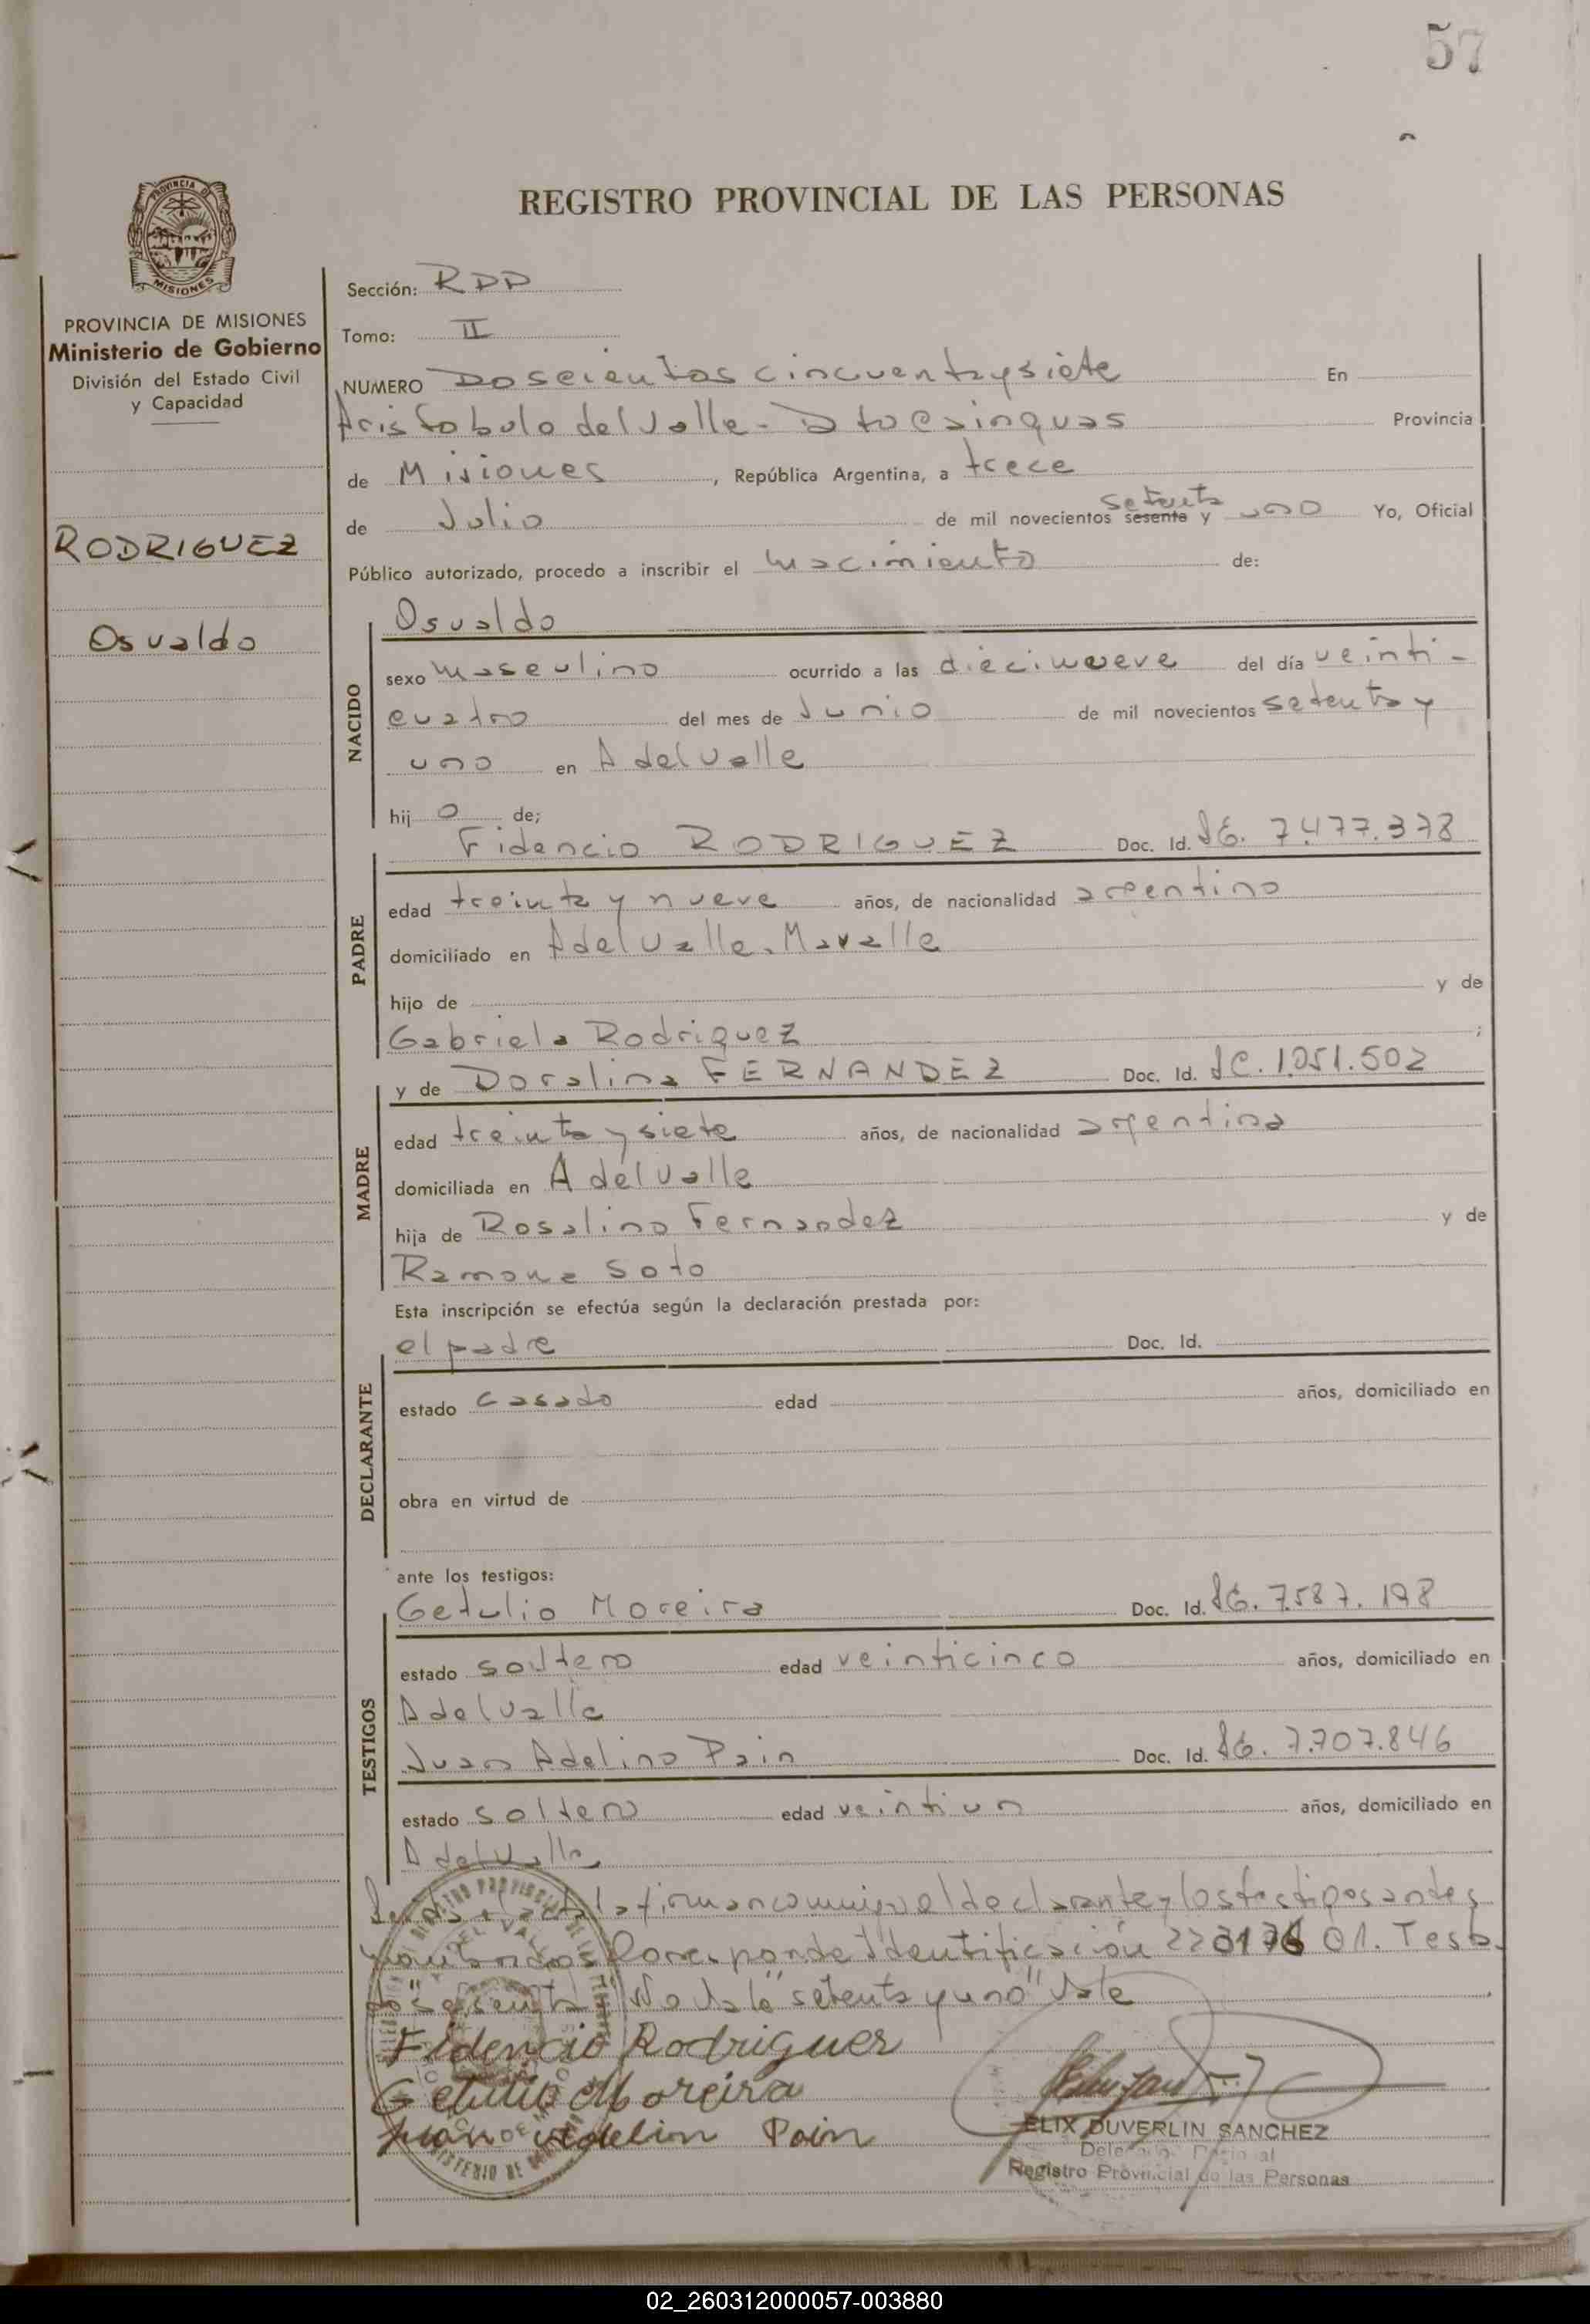 57
PROVINCIA DE
MISIONES
REGISTRO PROVINCIAL DE LAS PERSONAS
PROVINCIA DE MISIONES
Ministerio de Gobierno
División del Estado Civil
y Capacidad
RODRIGUEZ
Osvaldo
Sección: RDD
Tomo: II
NUMERO Doscientos cincuenta y siete En
Aristobulo del Valle - Dto Cainguas Provincia
de Misiones, República Argentina, a trece
de Julio de mil novecientos sesenta setenta y uno Yo, Oficial
Público autorizado, procedo a inscribir el nacimiento de:
NACIDO
Osvaldo
sexo masculino ocurrido a las diecinueve del día veinti-
cuatro del mes de Junio de mil novecientos setenta y
uno en A del Valle
hijo de;
PADRE
Fidencio RODRIGUEZ Doc. Id. 7.477.378
edad treinta y nueve años, de nacionalidad argentino
domiciliado en A del Valle.
hijo de y de
Gabriela Rodriguez ;
MADRE
y de Doralina FERNANDEZ Doc. Id. 1.051.502
edad treinta y siete años, de nacionalidad argentina
domiciliada en A del Valle
hija de Rosalino Fernandez y de
Ramona Soto
Esta inscripción se efectúa según la declaración prestada por:
DECLARANTE
el padre Doc. Id.
estado casado edad años, domiciliado en
obra en virtud de
ante los testigos:
TESTIGOS
Getulio Moreira Doc. Id. 7.587.198
estado soltero edad veinticinco años, domiciliado en
A del Valle
Juan Adelino Pain Doc. Id. 7.707.846
estado soltero edad veintiun años, domiciliado en
A del Valle
la firman conmigo el declarante y los testigos antes
Corresponde Identificación 01. Testa-
do "sesenta" No Vale "setenta y uno" Vale
Fidencio Rodriguez
Getulio Moreira
Juan Adelin Pain
ELIX DUVERLIN SANCHEZ
Registro Provincial de las Personas
02_260312000057-003880